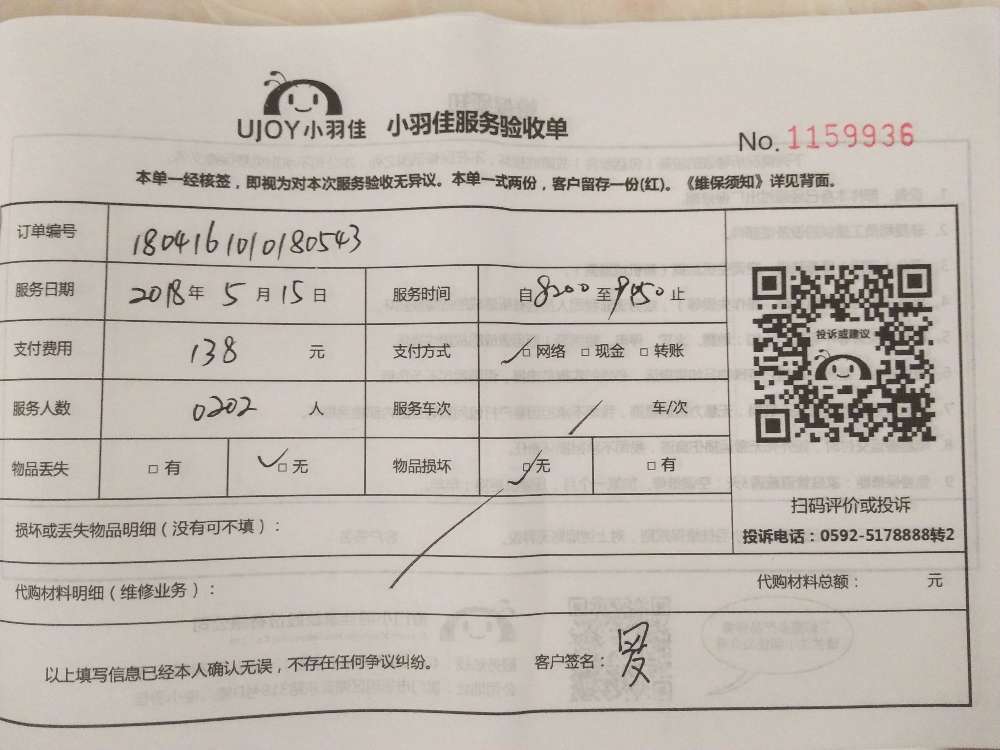 UJOY小羽佳 小羽佳服务验收单
No. 1159936
本单一经核签，即视为对本次服务验收无异议。本单一式两份，客户留存一份(红)。《维保须知》详见背面。
订单编号 1804161010180543
服务日期 2018年 5月 15日 服务时间 自8:00至9:50止
支付费用 138 元 支付方式 ✓□网络 □现金 □转账
服务人数 0202 人 服务车次 / 车/次
物品丢失 □有 ✓□无 物品损坏 ✓□无 □有
投诉或建议
扫码评价或投诉
投诉电话：0592-5178888转2
损坏或丢失物品明细（没有可不填）：
代购材料明细（维修业务）： 代购材料总额： 元
以上填写信息已经本人确认无误，不存在任何争议纠纷。 客户签名：